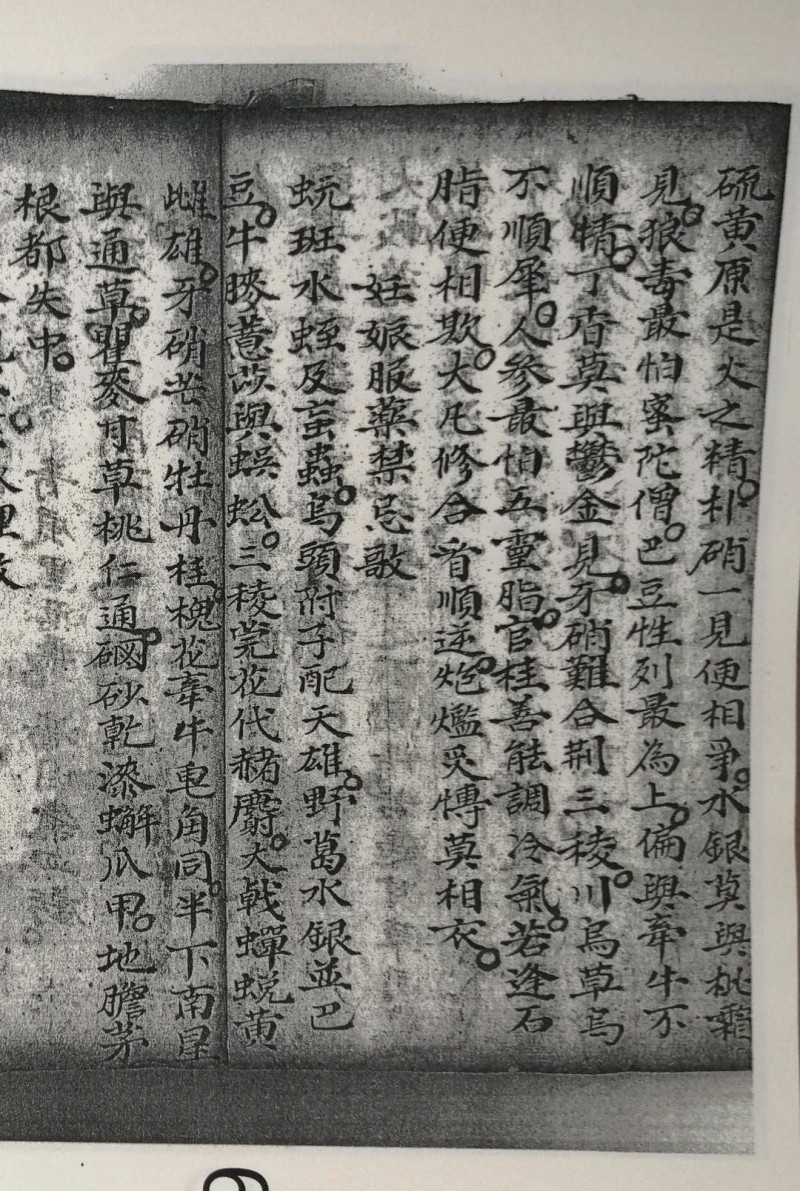 硫黃原是火之精。朴硝一見便相爭。水銀莫與砒霜
見。狼毒最怕蜜陀僧。巴豆性列最為上。偏與牽牛不
順情。丁香莫與鬱金見。牙硝難合荆三稜。川烏草烏
不順犀。人參最怕五靈脂。官桂善能調冷氣。若逢石
脂便相欺。大凡修合看順逆。炮爁炙慱莫相衣。
妊娠服藥禁忌歌
蚖斑水蛭及䖟蟲。烏頭附子配天雄。野葛水銀並巴
豆。牛膝薏苡與蜈蚣。三稜芫花代赭麝。大戟蟬蛻黃
雌雄。牙硝芒硝牡丹桂。槐花牽牛皂角同。半下南星
與通草。瞿麥甘草桃仁通。硇砂乾漆蠏爪甲。地膽茅
根都失中。